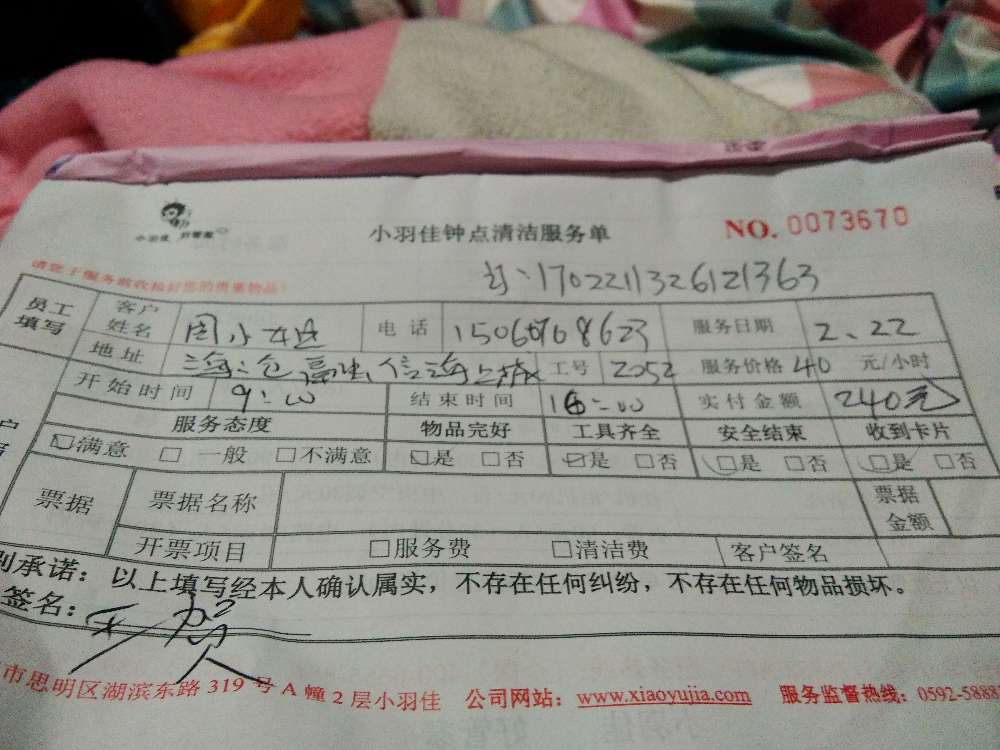 小羽佳 好管家
小羽佳钟点清洁服务单
NO. 0073670
请您于服务前收拾好您的贵重物品!
1702211326121363
员工填写 客户姓名 周小姐 电话 15060768623 服务日期 2.22
地址 海沧 信海上城 工号 2052 服务价格 40 元/小时
开始时间 9:00 结束时间 16:00 实付金额 240元
服务态度 物品完好 工具齐全 安全结束 收到卡片
□满意 □一般 □不满意 □是 □否 □是 □否 □是 □否 □是 □否
票据 票据名称 票据金额
开票项目 □服务费 □清洁费 客户签名
别承诺：以上填写经本人确认属实，不存在任何纠纷，不存在任何物品损坏。
签名：
市思明区湖滨东路 319 号 A 幢 2 层小羽佳 公司网站：www.xiaoyujia.com 服务监督热线：0592-5888